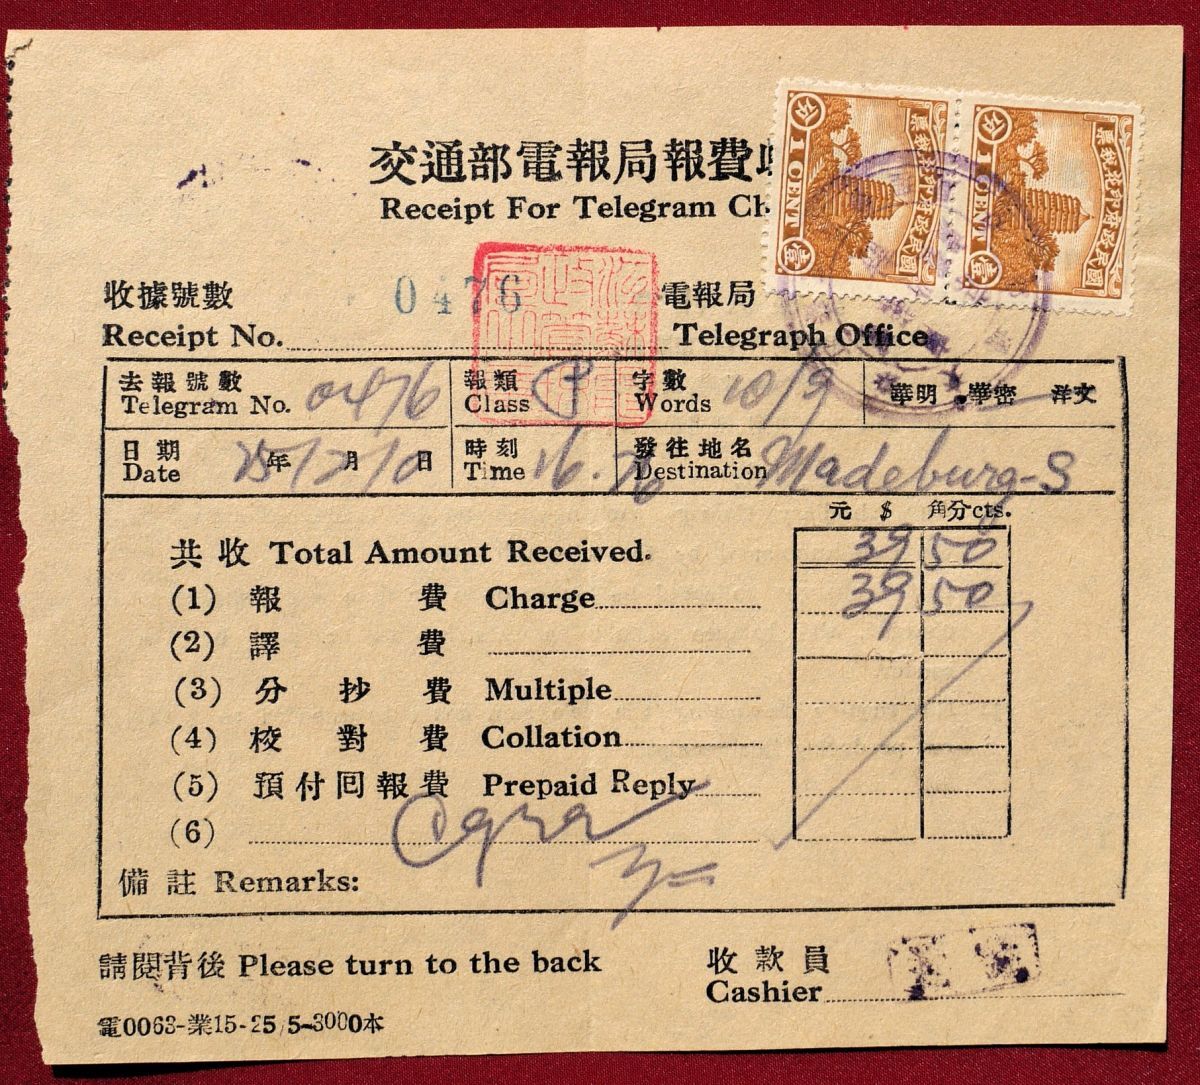 交通部電報局報費收
Receipt For Telegram Ch
收據號數 0476 電報局
Receipt No. Telegraph Office
去報號數 0476 報類 P 字數 10/9 華明 華密 洋文
Telegram No. Class Words
日期 25年 月 日 時刻 16. 發往地名 Madeburg-S
Date Time Destination
元 $ 角分cts.
共收 Total Amount Received. 39 50
(1) 報費 Charge 39 50
(2) 譯費
(3) 分抄費 Multiple
(4) 校對費 Collation
(5) 預付回報費 Prepaid Reply
(6)
備註 Remarks:
請閱背後 Please turn to the back 收款員
Cashier
電0063-業15-25/5-3000本
國民政府印花稅票
分 1 CENT 壹
國民政府印花稅票
分 1 CENT 壹